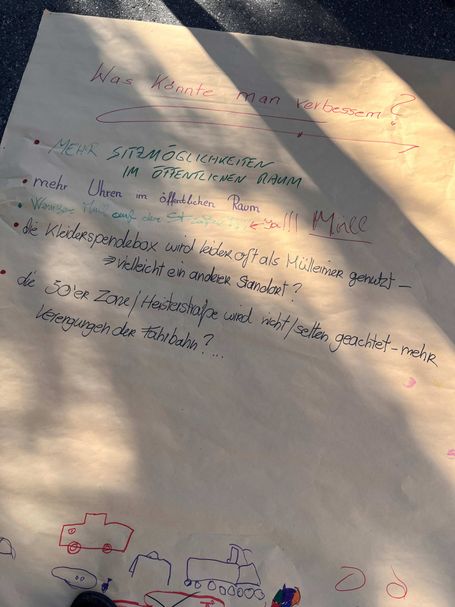 Was könnte man verbessern?
• MEHR SITZMÖGLICHKEITEN
IM ÖFFENTLICHEN RAUM
• mehr Uhren im öffentlichen Raum
• Weniger Müll auf der ← Yo!!! Müll
• die Kleiderspendebox wird leider oft als Mülleimer genutzt –
⇒ vielleicht ein anderer Standort?
• die 30'er Zone / Heisterstraße wird nicht / selten geachtet – mehr
Verengungen der Fahrbahn? ...